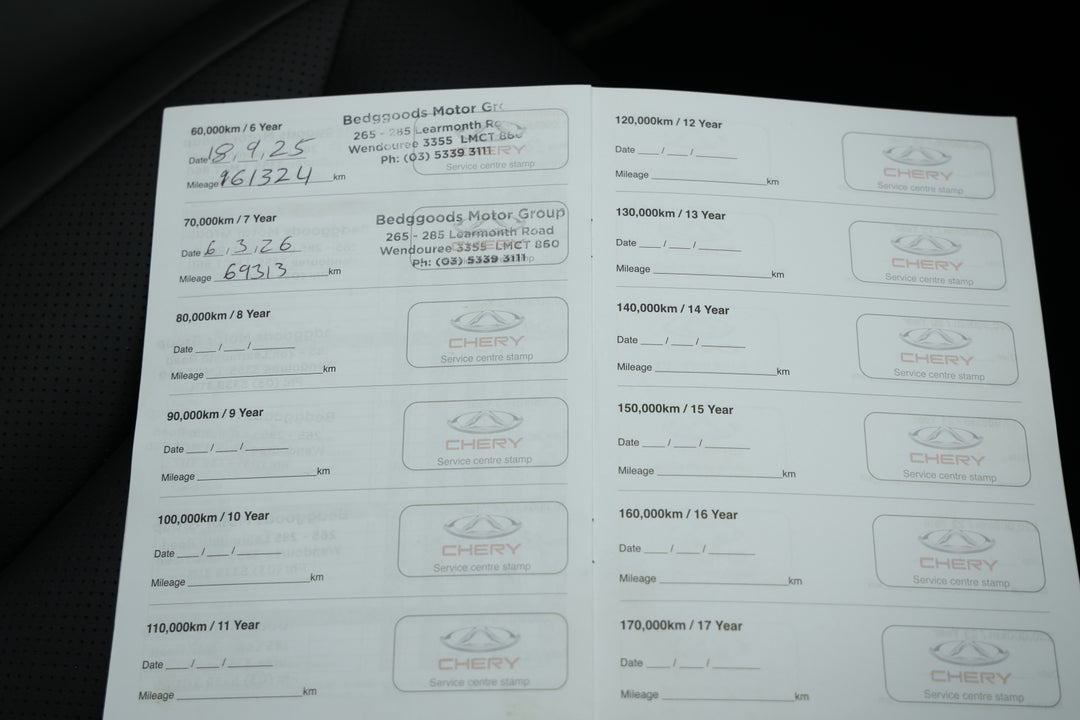 60,000km / 6 Year
Date 18, 9, 25
Mileage 61324 km
Bedggoods Motor Gr
265 - 285 Learmonth Ro
Wendouree 3355 LMCT 860
Ph: (03) 5339 3111
Service centre stamp
70,000km / 7 Year
Date 6, 3, 26
Mileage 69313 km
Bedggoods Motor Group
265 - 285 Learmonth Road
Wendouree 3355 LMCT 860
Ph: (03) 5339 3111
80,000km / 8 Year
Date ___ / ___ / ______
Mileage ______ km
CHERY
Service centre stamp
90,000km / 9 Year
Date ___ / ___ / ______
Mileage ______ km
CHERY
Service centre stamp
100,000km / 10 Year
Date ___ / ___ / ______
Mileage ______ km
CHERY
Service centre stamp
110,000km / 11 Year
Date ___ / ___ / ______
Mileage ______ km
CHERY
Service centre stamp
120,000km / 12 Year
Date ___ / ___ / ______
Mileage ______ km
CHERY
Service centre stamp
130,000km / 13 Year
Date ___ / ___ / ______
Mileage ______ km
CHERY
Service centre stamp
140,000km / 14 Year
Date ___ / ___ / ______
Mileage ______ km
CHERY
Service centre stamp
150,000km / 15 Year
Date ___ / ___ / ______
Mileage ______ km
CHERY
Service centre stamp
160,000km / 16 Year
Date ___ / ___ / ______
Mileage ______ km
CHERY
Service centre stamp
170,000km / 17 Year
Date ___ / ___ / ______
Mileage ______ km
CHERY
Service centre stamp